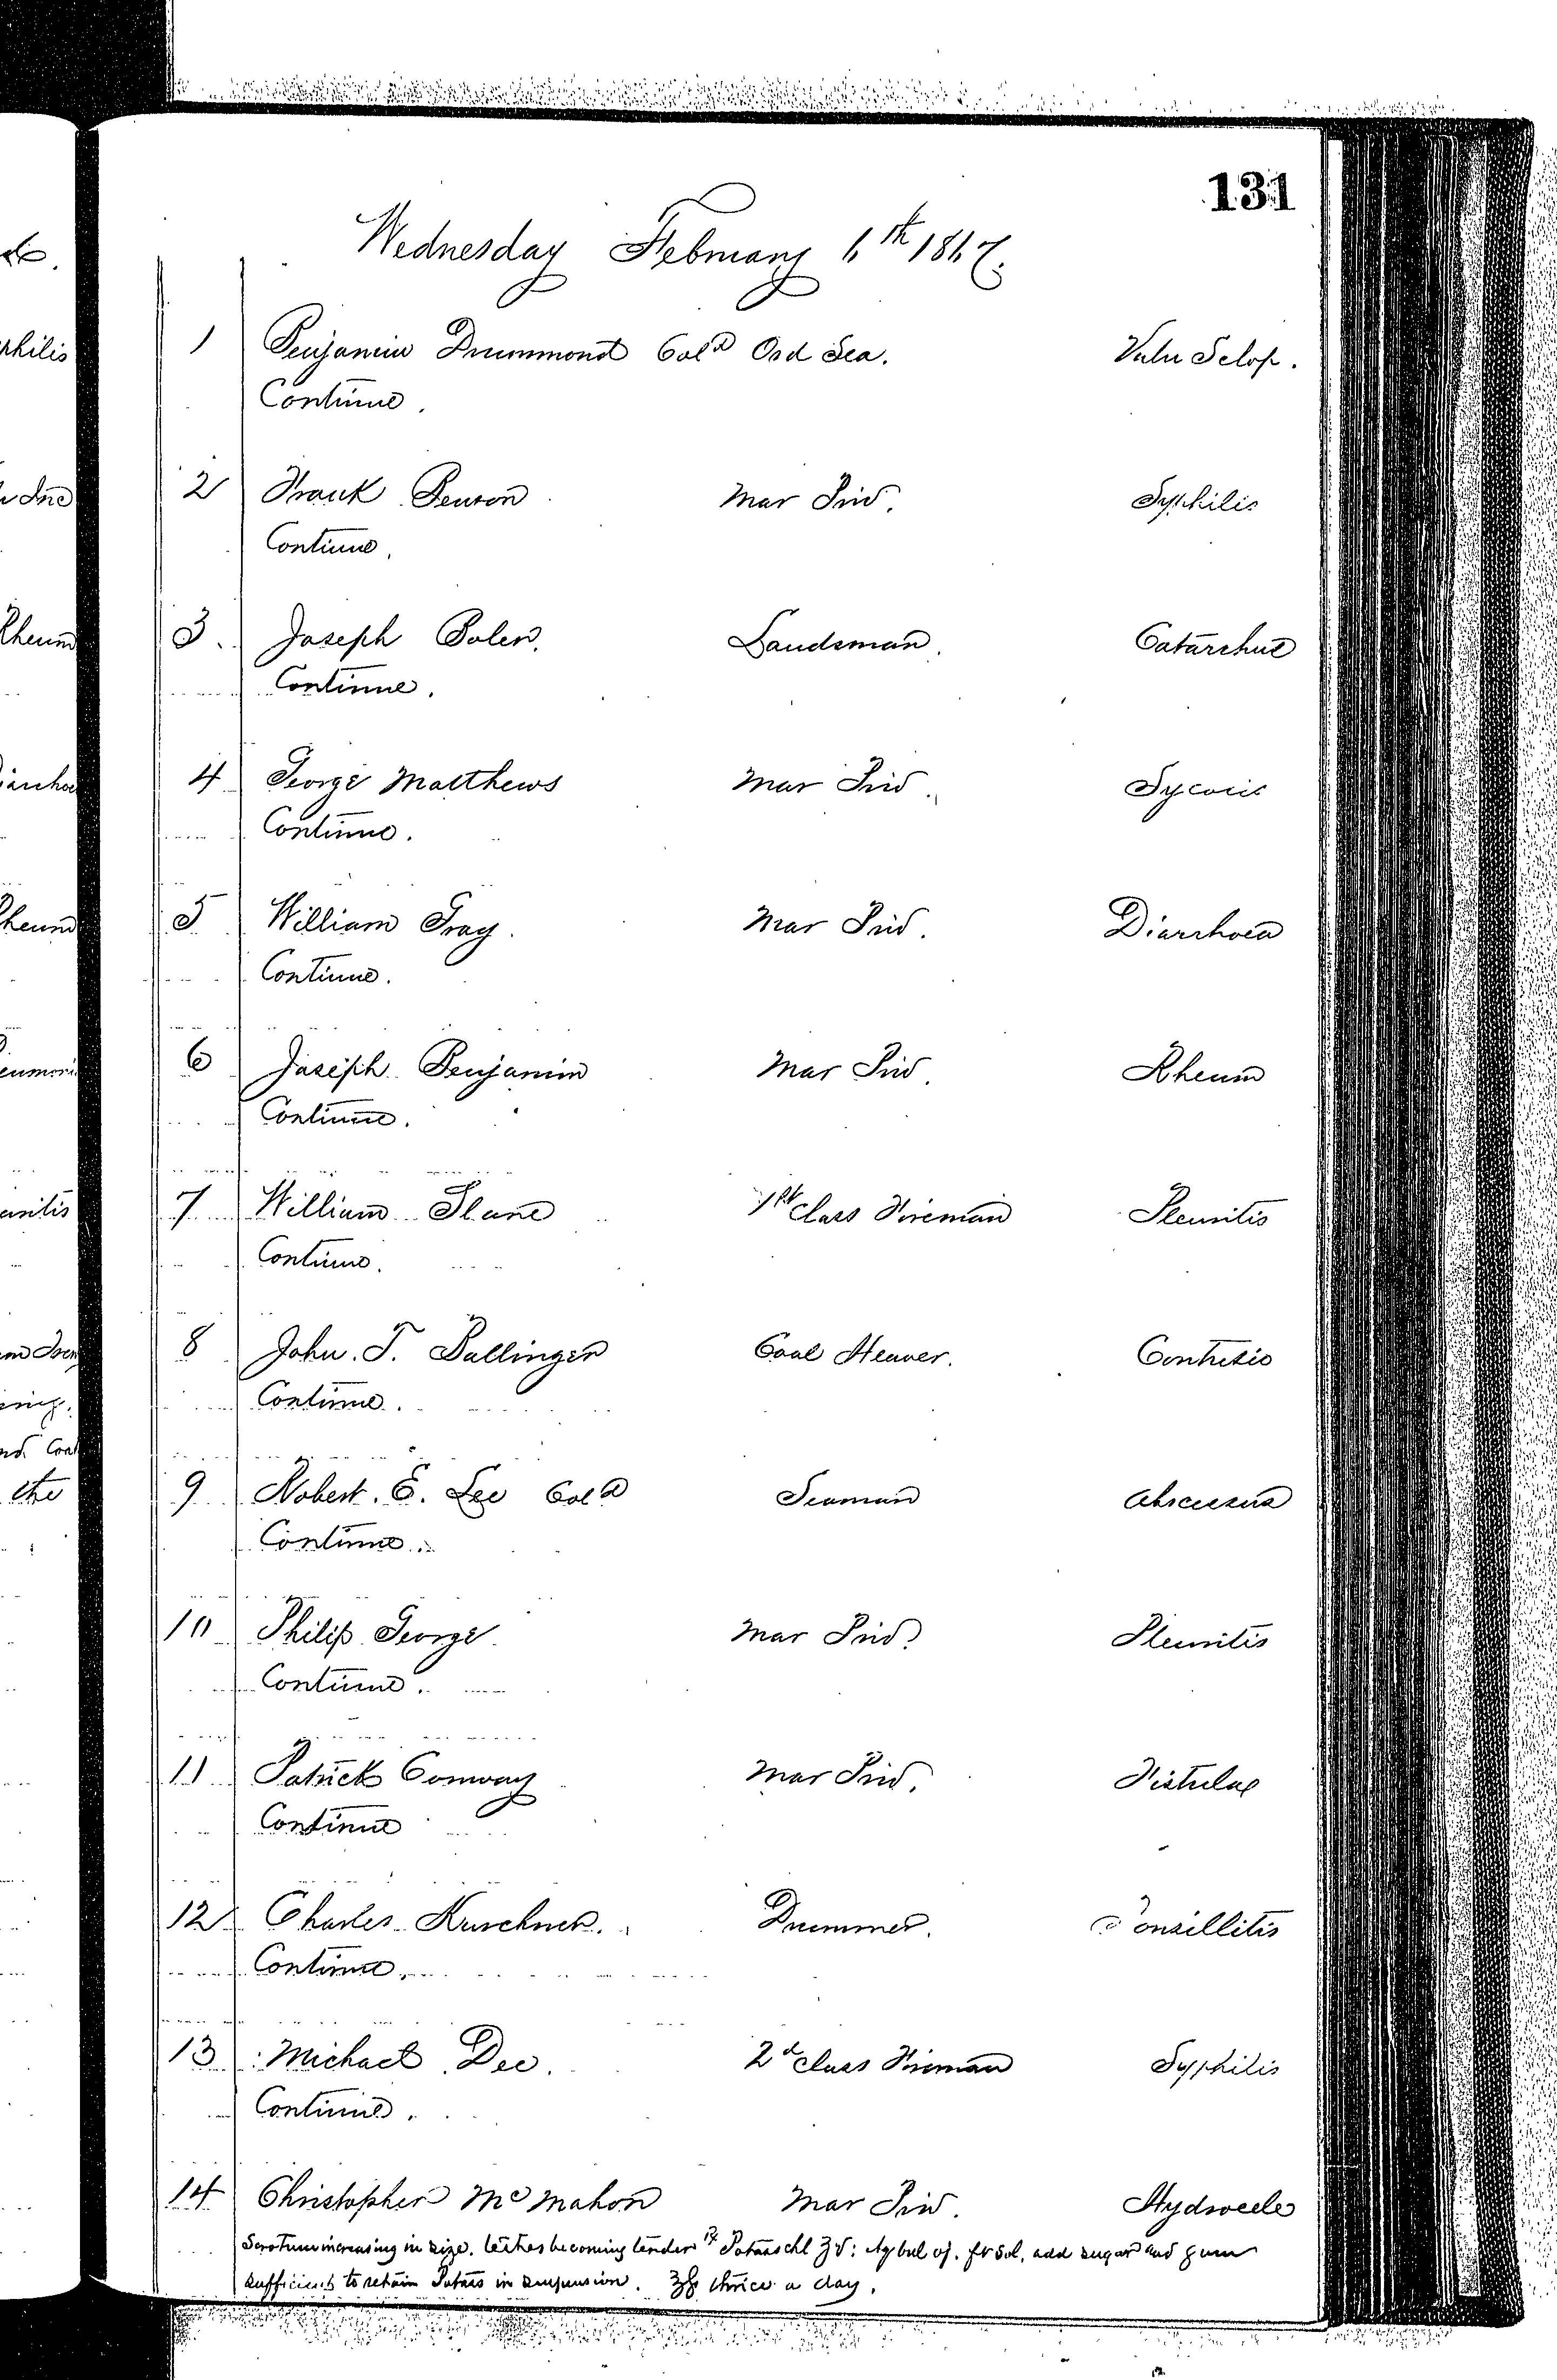 131
Wednesday February 6th 1867.
1 Benjamin Drummond Cold Ord Sea. Vuln Sclop.
Continue.
2 Frank Benson Mar Priv. Syphilis
Continue.
3. Joseph Bolen. Landsman. Catarrhus
Continue.
4 George Matthews Mar Priv. Sycosis
Continue.
5 William Gray. Mar Priv. Diarrhoea
Continue.
6 Joseph Benjamin Mar Priv. Rheum
Continue.
7 William Slane 1st Class Fireman Pleuritis
Continue.
8 John. T. Ballinger Coal Heaver. Contusio
Continue.
9 Robert. E. Lee Cold Seaman Abscessus
Continue.
10 Philip George Mar Priv. Pleuritis
Continue.
11 Patrick Conway Mar Priv. Fistulae
Continue
12 Charles Kirschner. Drummer. Tonsillitis
Continue.
13 Michael Dee. 2d Class Fireman Syphilis
Continue.
14 Christopher McMahon Mar Priv. Hydrocele
Scrotum increasing in size. testes becoming tender ℞ Potass chl ʒv: Aq bul oj. ft sol, add sugar and gum
sufficient to retain Potass in suspension. thrice a day.